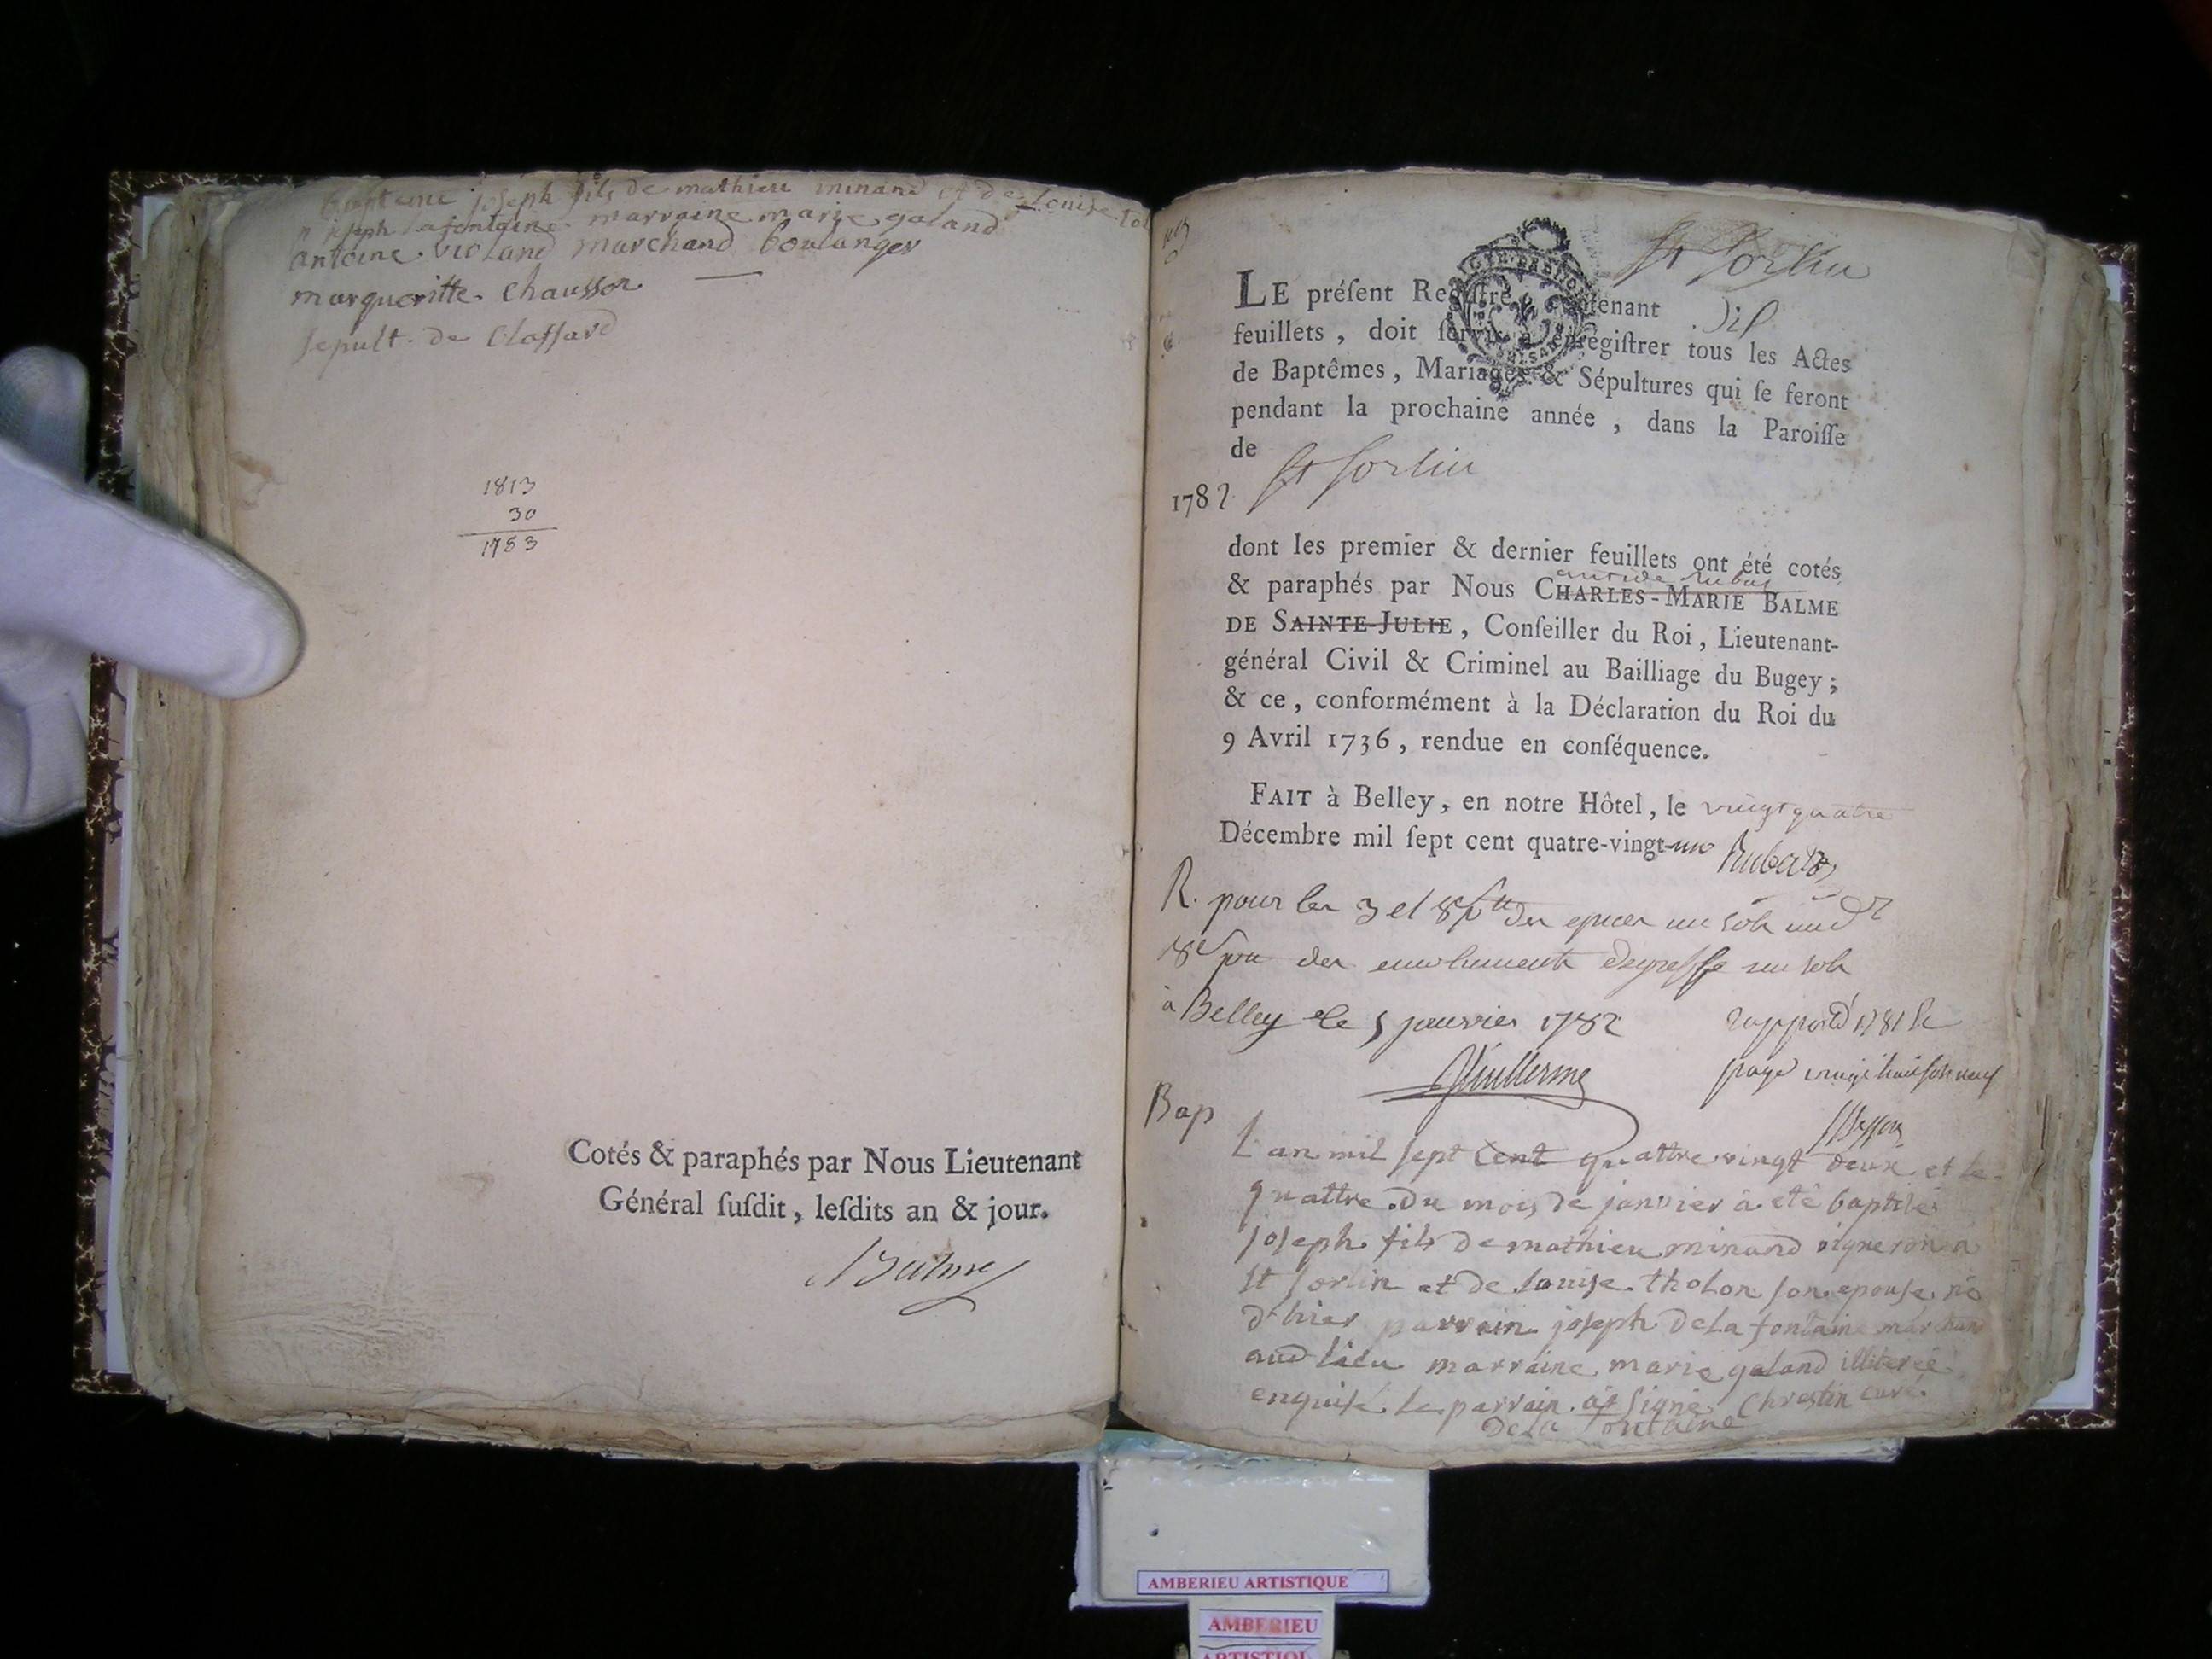 bapteme joseph fils de mathieu minand et de Louise tol
p joseph lafontaine marraine marie galand
antoine violand marchand boulanger
margueritte chausson
sepult. de Classard
1813
30
1783
Cotés & paraphés par Nous Lieutenant
Général ſuſdit, leſdits an & jour.
Balme
St Sorlin
LE préſent Regiſtre, contenant dix
feuillets, doit ſervir à enregiſtrer tous les Actes
de Baptêmes, Mariages & Sépultures qui ſe feront
pendant la prochaine année, dans la Paroiſſe
de St Sorlin
1782
dont les premier & dernier feuillets ont été cotés
& paraphés par Nous CHARLES-MARIE BALME
DE SAINTE-JULIE, Conſeiller du Roi, Lieutenant-
général Civil & Criminel au Bailliage du Bugey;
& ce, conformément à la Déclaration du Roi du
9 Avril 1736, rendue en conſéquence.
FAIT à Belley, en notre Hôtel, le vingt quatre
Décembre mil ſept cent quatre-vingt-un Rubat
R. pour les 3 et 8 des epices un sols
des emoluments degreffe un sols
à Belley le 5 janvier 1782
Guillerme
rapporté 1781
page
Bap
L'an mil sept cent quattre vingt deux et le
quattre du mois de janvier à eté baptisé
joseph fils de mathieu minand vigneron a
St Sorlin et de Louise tholon son epouse né
d'hier parrain joseph de la fontaine marchand
aud lieu marraine marie galand illiterée
enquise le parrain a signé Chrestin curé.
De la fontaine
AMBERIEU ARTISTIQUE
AMBERIEU
ARTISTIQUE